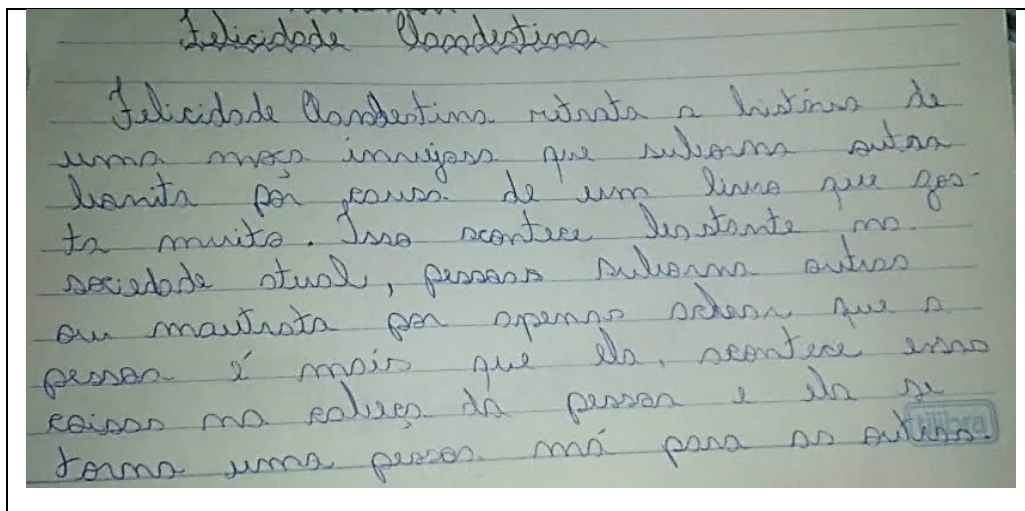 Felicidade Clandestina
Felicidade Clandestina retrata a história de
uma moça invejosa que suborna outra
bonita por causa de um livro que gos-
ta muito. Isso acontece bastante na
sociedade atual, pessoas suborna outras
ou mautrata por apenas achar que a
pessoa é mais que ela, acontece essas
coisas na cabeça da pessoa e ela se
torna uma pessoa má para as outras.